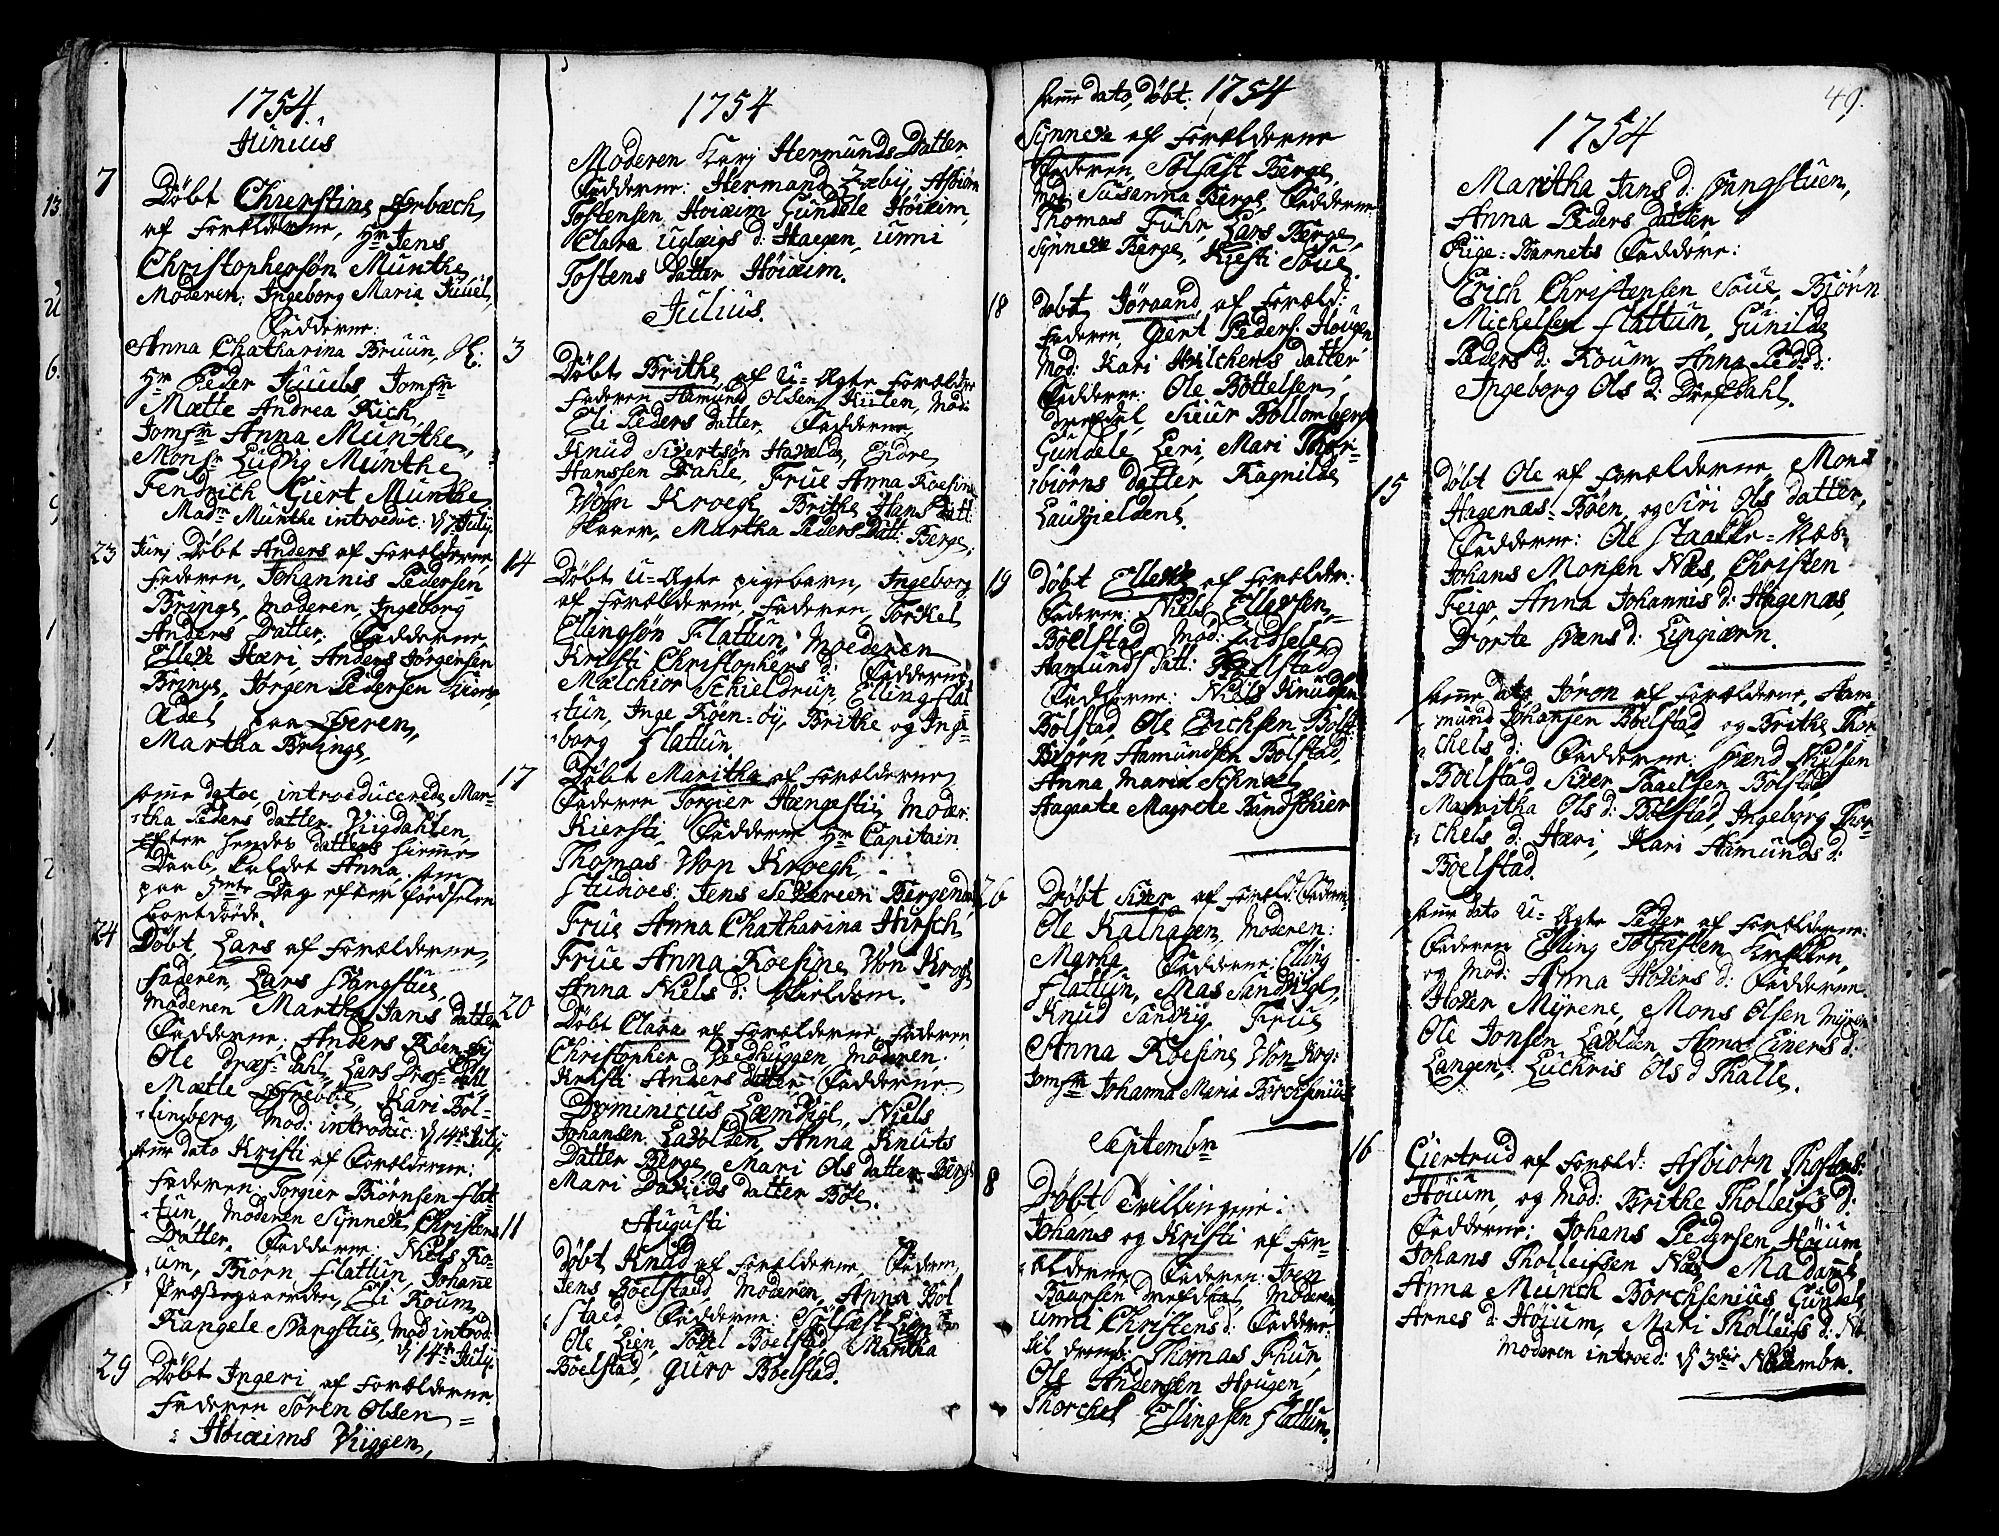 1754
Junius
7
Døbt Chierstine
af Forældrerne, Hr Jens
Christophersøn Munthe
Moderen: Ingeborg Maria Juuel,
Fadderne:
Anna Chatharina Bruun,
Hr Peder Juuels, Jomfr
Mætte Andrea Rich,
Jomfr Anna Munthe,
Monsr Ludvig Munthe
Fendrich Giert Munthe
Madm Munthe introduc: July
23 Junj Døbt Anders af Forælderne
Faderen, Johannis Pedersen
Bringe, Moderen, Ingeborg
Anders Datter, Fadderne
Elleve Hæri, Anders Jørgensen
Bringe, Jørgen Pedersen
paa
Martha Bringe,
samme datoe, introducerede Mar-
tha Peders datter Vigdahlen,
efter hendes datters hiemme
Daab, kaldet Anna, som
paa Dag efter fødselen
bortdøde.
24
Døbt, Lars af Forælderne,
Faderen, Lars Spangstue,
Moderen Martha Jans datter
Fadderne: Anders Røen-øy
Ole Dræf-dahl, Lars Dræf-dahl
Mætte, Kari Bol-
lingberg, Mod: introduc: 14 July.
samme dato Kristi af Forælderne:
Faderen. Torgier Biørnsen Flat-
tun, Moderen Synneve Christens
Datter. Fadderne: Niels Ro-
um, Biørn Flattun, Johane
Prestegaarden, Eli Roum,
Rangele Spangstue, Mod introd:
14 July
29
Døbt Ingeri af Forælderne
Faderen Søren Olsen
Høiæims Viggen,
1754
Moderen Kari Hermunds Datter
Fadderne: Hermand Ræby, Asbiørn
Tostensen Høiæim, Gundele Høiæim,
Clara Uglæigs d: Haegen, Unni
Tostens Datter Høiæim.
Julius.
3
Døbt Brithe af U-Ægte Forældre
Faderen Aamund Olsen, Mod:
Eli Peders datter, Fadderne
Knud Sivertsøn Havelde, Endre
Hanssen Dahle, Frue Anna Roesine
Von Krogh, Brithe Hans Datt:
Skaar, Martha Peders Datt: Berge,
14
Døbt U-Ægte pigebarn, Ingeborg
af Forælderne, Faderen, Torkel
Ellingsøn Flattun, Moederen
Kristi Christophers d: Fadderne
Mælchior Schieldrup, Elling Flat-
tun, Inge Røen-øy, Brithe og Inge-
borg Flattun
17
Døbt Maritha af Forælderne
Faderen Torgier Hængestii, Moder:
Kiersti, Fadderne Hr Capitain
Thomas Von Krogh,
Studioes: Jens Severien
Frue Anna Chatharina Hirsch,
Frue Anna Roesine Von Krogh
Anna Niels d: Skieldom.
20
Døbt Clara af Forælderne Faderen
Christopher, Moderen
Kristi Anders datter Fadderne
Dominicus Læmvigh, Niels
Johansen Lavolden, Anna Knuts
Datter Berge, Mari Ols datter Berge
Mari Davids datter Bøe.
Augusti
11
Døbt Knud af Forælderne Faderen,
Jens Boelstad, Moderen, Anna Bol-
staed, Fadderne: Solfæst
Ole Lien, Boelstad, Martha
Boelstad, Guro Boelstad.
samme dato, døbt. 1754
Synneve af Forælderne
Faderen, Solfæst Berge,
Mod: Susanna Berge, Fadderne
Thomas Fuhr, Lars Berge,
Synneve Berge, Kiesti Soue.
18
Døbt Jøraand af Foræld:
Faderen, Gert Peders: Hougen
Mod: Kari Hilchens datter
Fadderne: Ole Bottelsen
Drefdal, Siiur Bollomberg
Gundele Leri, Mari Thor-
biørns datter Ragnilde
Laugieldene,
19
Døbt Elleve af Forælder:
Faderen: Niels Ellevsen
Boelstad Mod: Lidsele
Aamunds Datt: Boelstad
Fadderne: Niels Knudsen
Bolstad, Ole Erichsen Bolst:
Biørn Aamundsen Bolstad,
Anna Maria Schnæl
Aagaate Magrete Bandschier
26
Døbt Siver af Foræld: Faderen
Ole Kalhagen, Moderen:
Marha Fadderne: Elling
Flattun, Mas Sandvigh,
Knud Sandvig Frue
Anna Roesine Von Krog:
Jomfr Johanna Maria Borchsenius
Septembr
8
Døbt Tvillingene:
Johans og Kristi af For-
ælderne Faderen: Joen
Baarsen, Moderen,
Unni Christens d: Fadderne
til drenge: Thomas Fhur,
Ole Andersen Hougen,
Thorchel Ellingsen Flattun.
49.
1754
Maritha Jans d: Spangstuen,
Anna Peders datter
Piige-Barnets Faddere:
Erich Christensen Soue, Biørn
Michelsen Flattun, Gunilde
Peders d: Roum, Anna Ped: d:
Ingeborg Ols d: Drefdahl.
15
Døbt Ole af Forælderne, Mons
Hagenæs-Bøen, og Siri Ols datter,
Fadderne: Ole Staacke-Næs,
Johans Monsen Næs, Christen
Feige, Anna Johannis d: Hagenæs,
Dorte d: Lingiærn.
samme dato Jøron af Forælderne, Aam-
mund Johansen Boelstad og Brithe Thor-
chels d: Fadderne: Svend Nielsen
Boelstad, Siver Paaelsen Bolstad
Maritha Ols d: Bolstad, Ingeborg Thor-
chels d: Hæri, Kari Aamunds d:
Boelstad.
samme dato U-Ægte Peder af Forælderne:
Faderen Elling Solfæsten,
og Mod: Anna d: Fadderne.
Myrene, Mons Olsen Myren
Ole Jonsen Lavolden, Anna Siners d:
Langen, Luchris Ols d Thalle.
16
Giertrud af Foræld: Asbiørn Thostens:
Høium, og Mod: Brithe Tholleifs d:
Fadderne: Johans Pedersen Høium
Johans Tholleifsen Næs, Madame
Anna Munch Borchsenius, Gundele
Arnes d: Høium, Mari Tholleifs d:
Moderen introd: 3die Novembr.